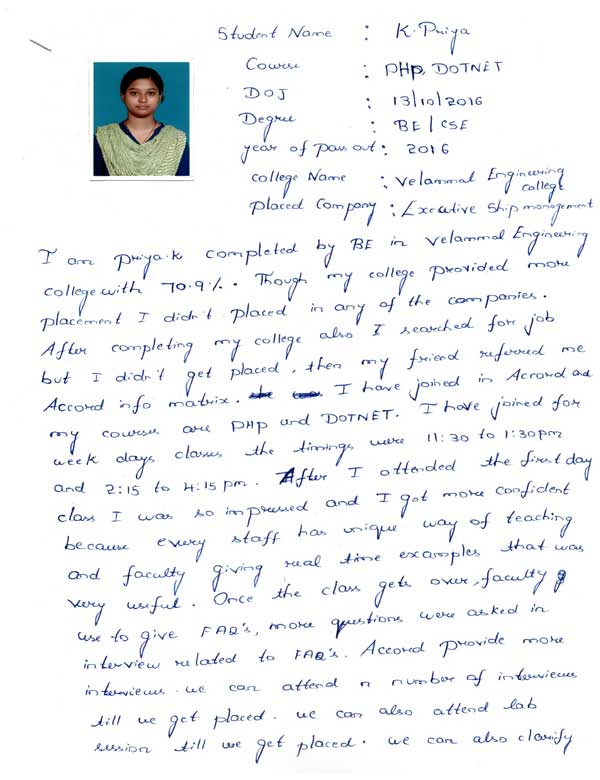 Student Name : K. Priya
Course : PHP, DOTNET
DOJ : 13/10/2016
Degree : BE / CSE
year of pass out : 2016
college Name : Velammal Engineering college
Placed Company : Executive Ship management
I am priya.k completed by BE in Velammal Engineering
college with 70.9%. Though my college provided more
placement I didn't placed in any of the companies.
After completing my college also I searched for job
but I didn't get placed, then my friend referred me
Accord info matrix. I have joined in Accord and
my courses are PHP and DOTNET. I have joined for
week days classes the timings were 11:30 to 1:30pm
and 2:15 to 4:15 pm. After I attended the first day
class I was so impressed and I got more confident
because every staff has unique way of teaching
and faculty giving real time examples that was
very useful. Once the class gets over, faculty
use to give FAQ's, more questions were asked in
interview related to FAQ's. Accord provide more
interviews. we can attend n number of interviews
till we get placed. we can also attend lab
session till we get placed. we can also clarify